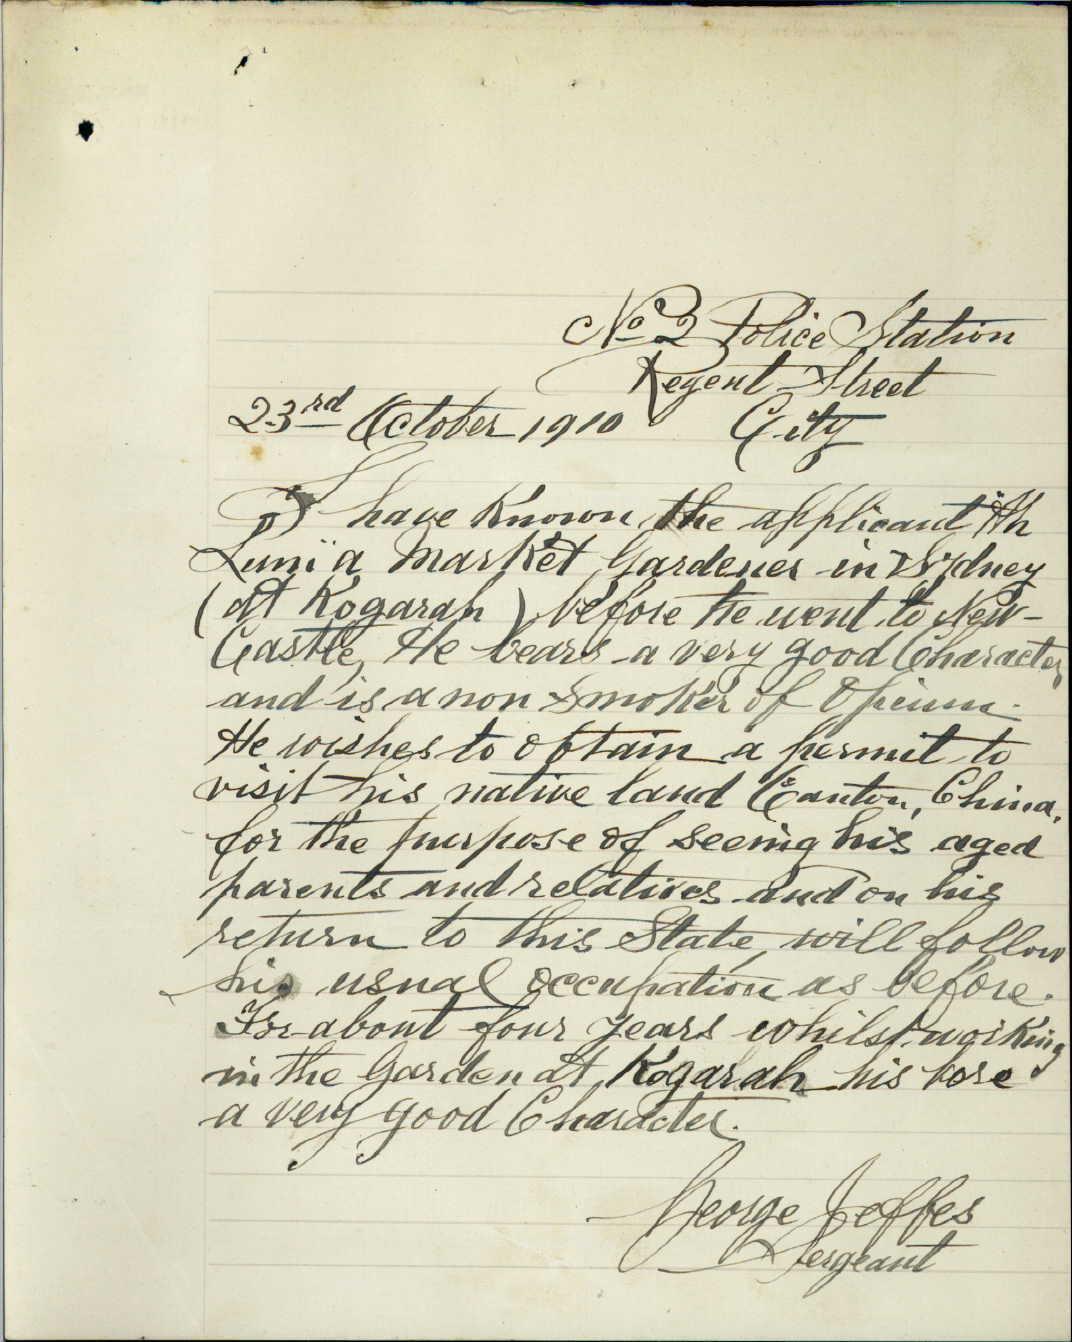 No 2 Police Station
Regent Street
23rd October 1910 City
I have known the applicant Ah
Lum a Market Gardener in Sydney
(at Kogarah) before he went to New-
Castle, He bears a very good Character
and is a non Smoker of Opium.
He wishes to obtain a permit to
visit his native land Canton, China,
for the purpose of seeing his aged
parents and relatives and on his
return to this State, will follow
his usual occupation as before.
For about four years whilst working
in the Garden at Kogarah his bore
a very good Character.
George Jeffes
Sergeant